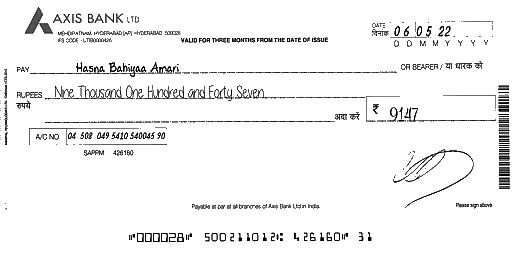 AXIS BANK LTD
MEHDIPATNAM, HYDERABAD [AP] -HYDERABAD 500028
IFS CODE - UTIB0000426
VALID FOR THREE MONTHS FROM THE DATE OF ISSUE
DATE
दिनांक 06 05 22
D D M M Y Y Y Y
PAY Hasna Bahiyaa Amari OR BEARER / या धारक को
RUPEES Nine Thousand One Hundred and Forty Seven
रुपये
अदा करें ₹ 9147
A/C NO 04 508 049 5410 540045 90
SAPPM 426160
Payable at par at all branches of Axis Bank Ltd in India.
Please sign above
"000028" 500211012: 426160" 31